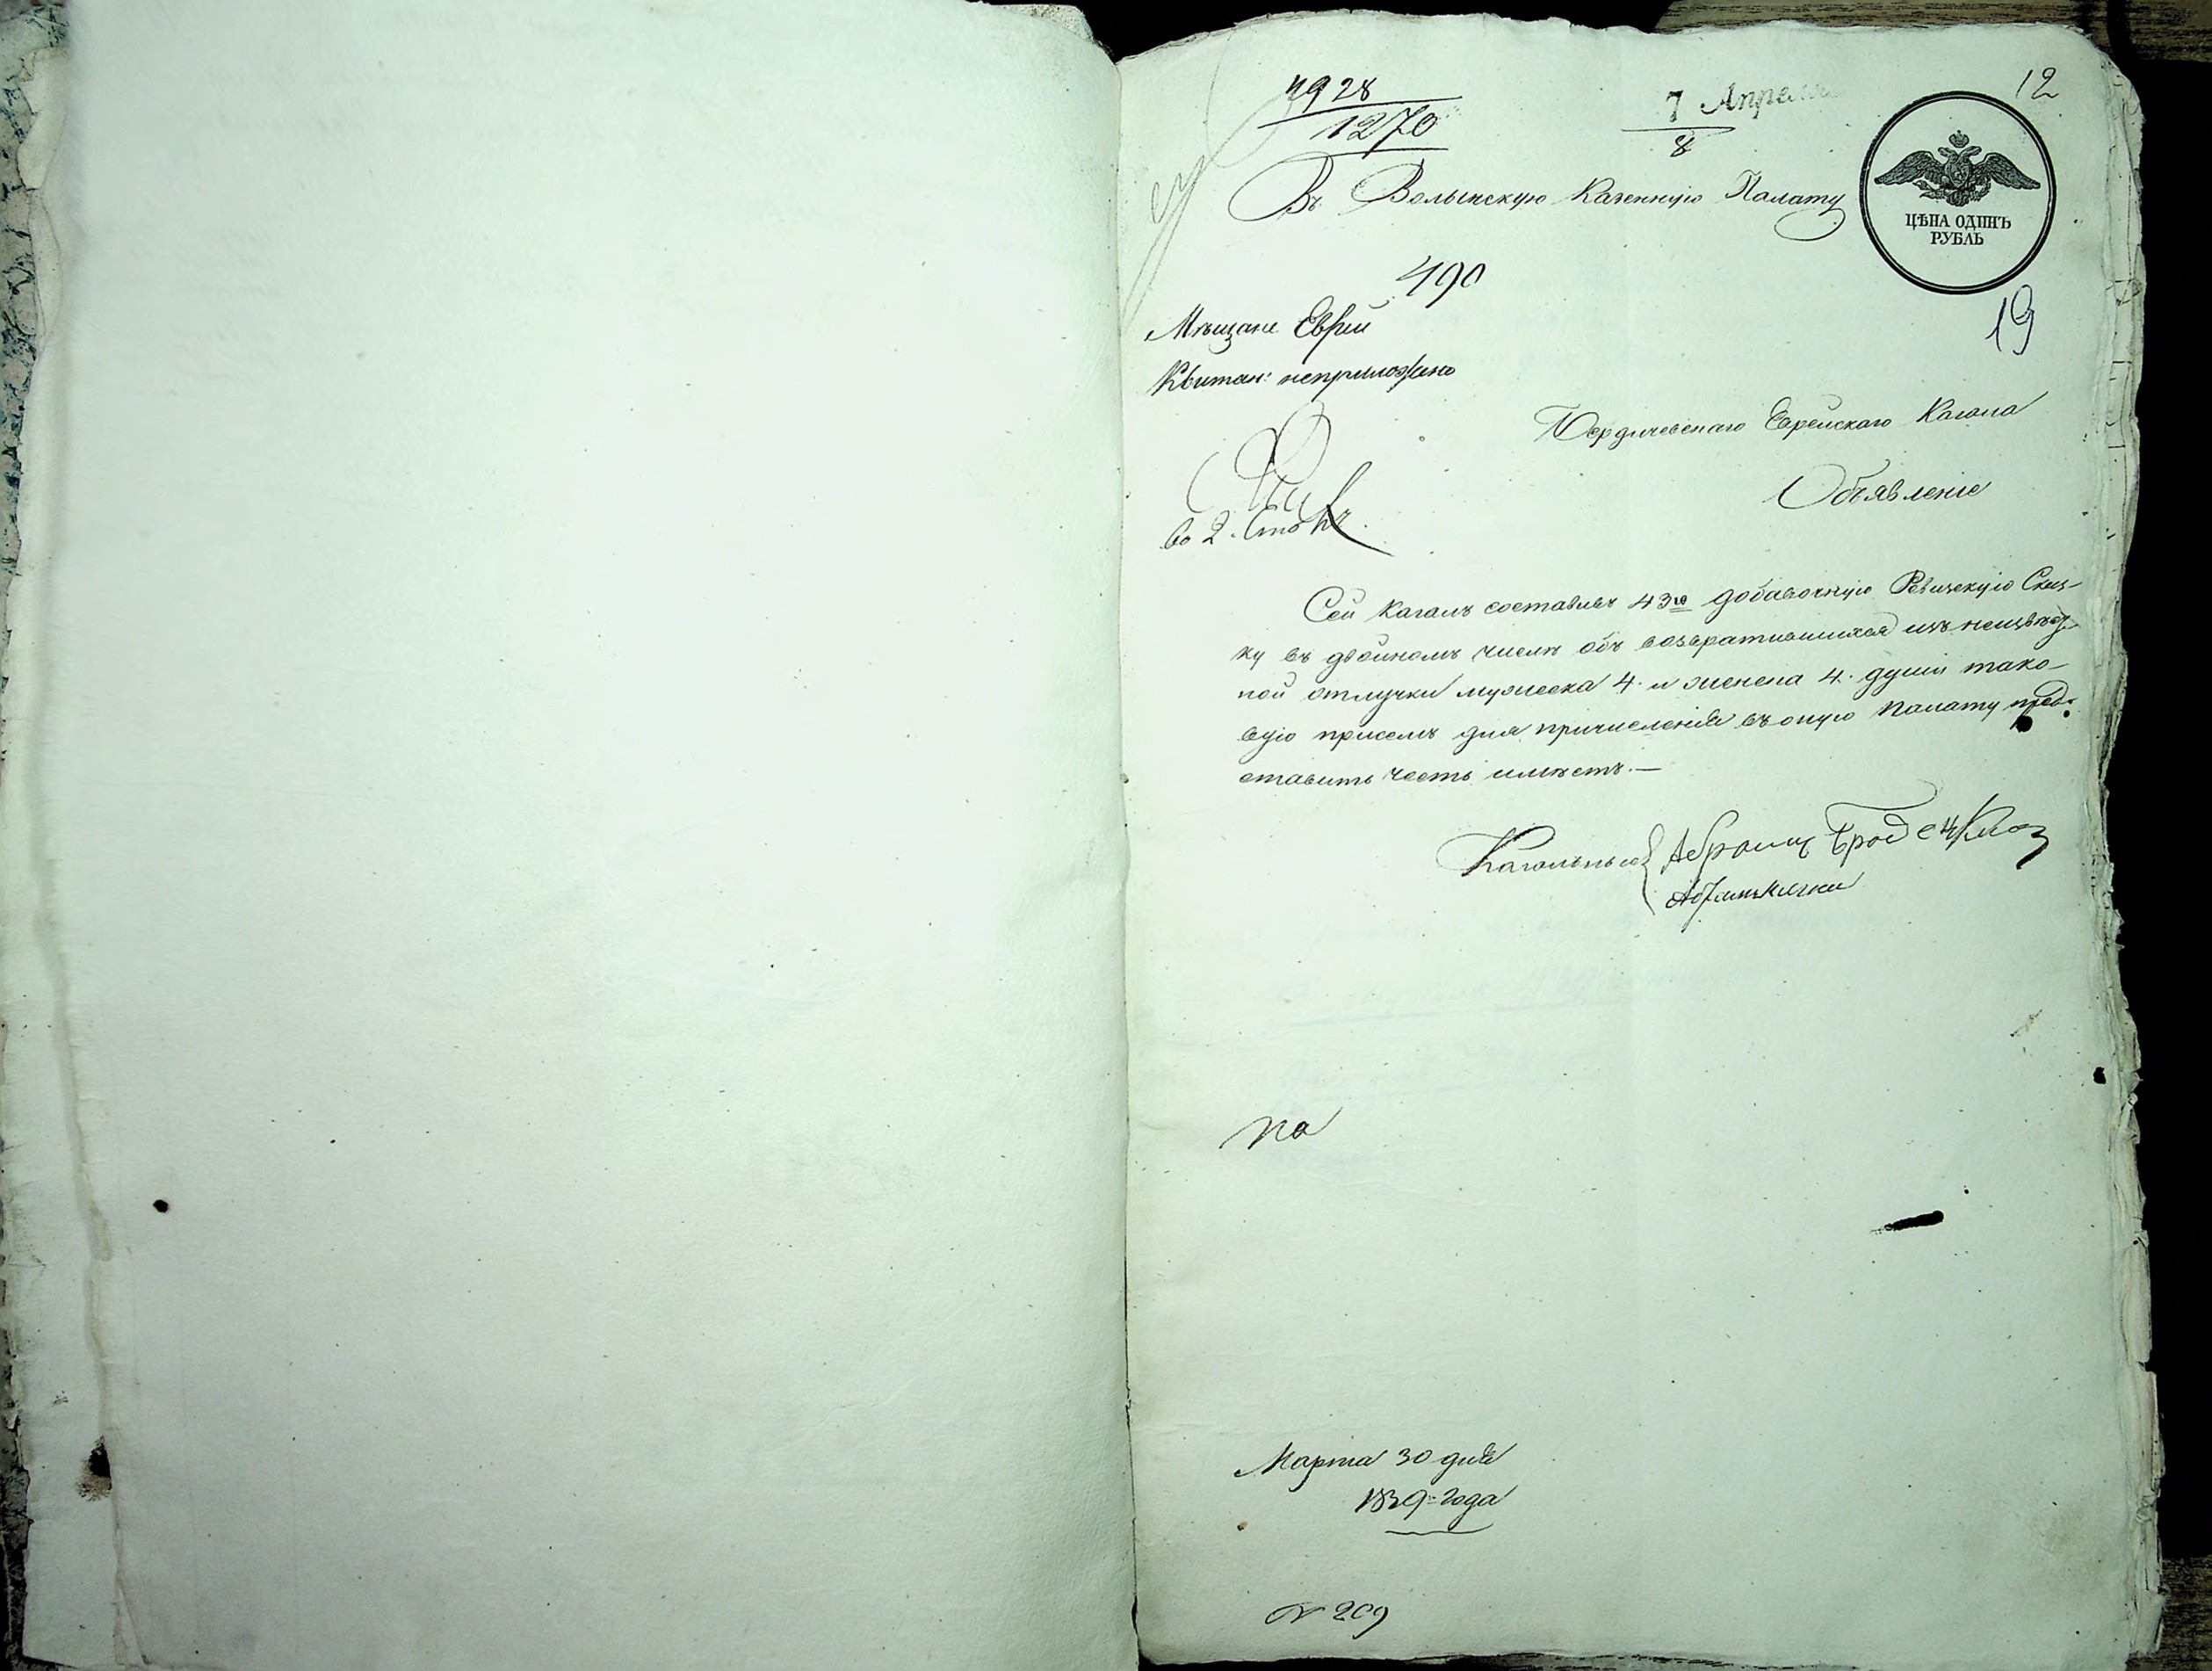 4928
1270
7 Апреля
8
12
Въ Волынскую Казенную Палату
ЦѢНА ОДИНЪ
РУБЛЬ
490
19
Мѣщане Евреи
Квитан: неприложено
Бердичевскаго Еврейскаго Кагала
Объявленіе
во 2. Сто
Сей Кагалъ составивъ 43ю добавочную Ревизскую Сказ-
ку въ двойномъ числѣ объ возвратившихся изъ неизвѣст-
ной отлучки мужеска 4. и женска 4. души тако-
вую присемъ для причисленія въ оную Палату пред-
ставить честь имѣетъ.—
Кагальные
Марта 30 дня
1839 года
№ 209